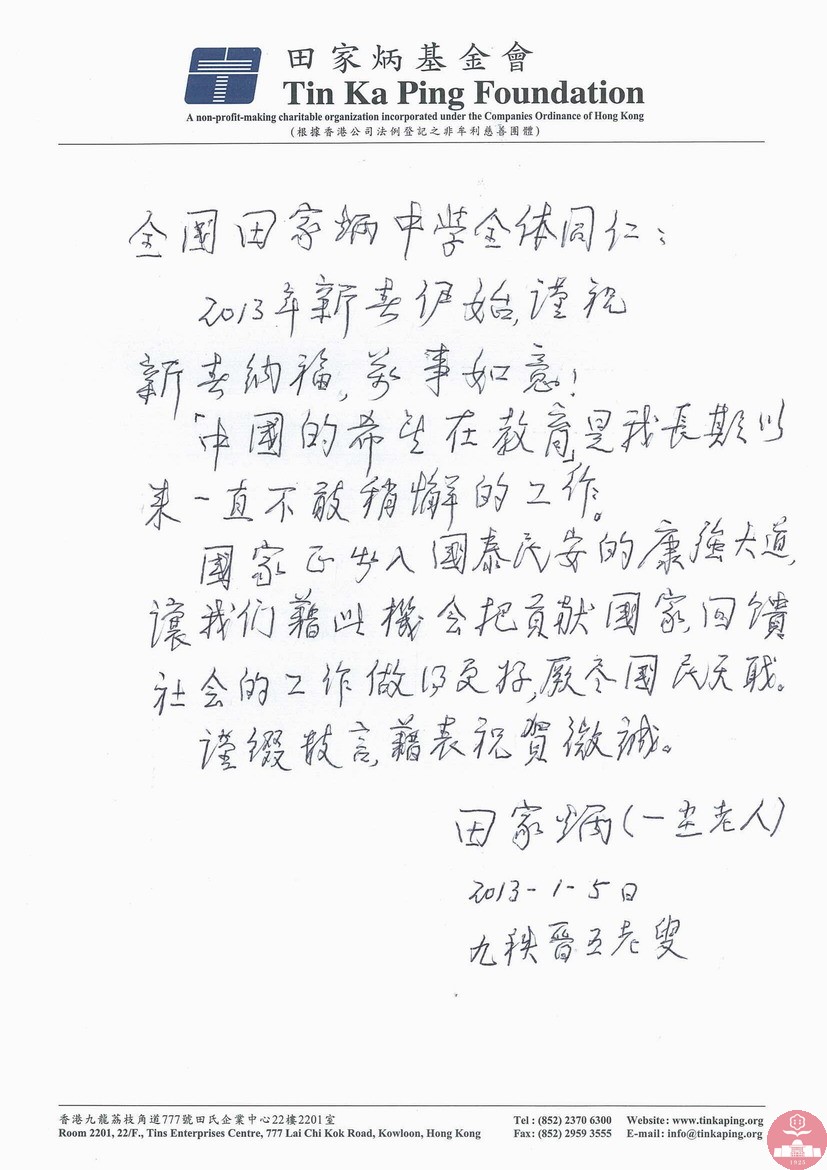 田家炳基金會
Tin Ka Ping Foundation
A non-profit-making charitable organization incorporated under the Companies Ordinance of Hong Kong
(根據香港公司法例登記之非牟利慈善團體)
全國田家炳中學全体同仁：
2013年新春伊始，謹祝
新春納福，萬事如意！
「中國的希望在教育」是我長期以
来一直不敢稍懈的工作。
國家正步入國泰民安的康強大道，
讓我们藉此機会把貢献國家，回饋
社会的工作做得更好，厥尽國民天職。
谨缀散言，藉表祝賀微誠。
田家炳(一尘老人)
2013-1-5日
九秩晋五老叟
香港九龍荔枝角道777號田氏企業中心22樓2201室
Room 2201, 22/F., Tins Enterprises Centre, 777 Lai Chi Kok Road, Kowloon, Hong Kong
Tel : (852) 2370 6300 Website : www.tinkaping.org
Fax: (852) 2959 3555 E-mail : info@tinkaping.org
1925